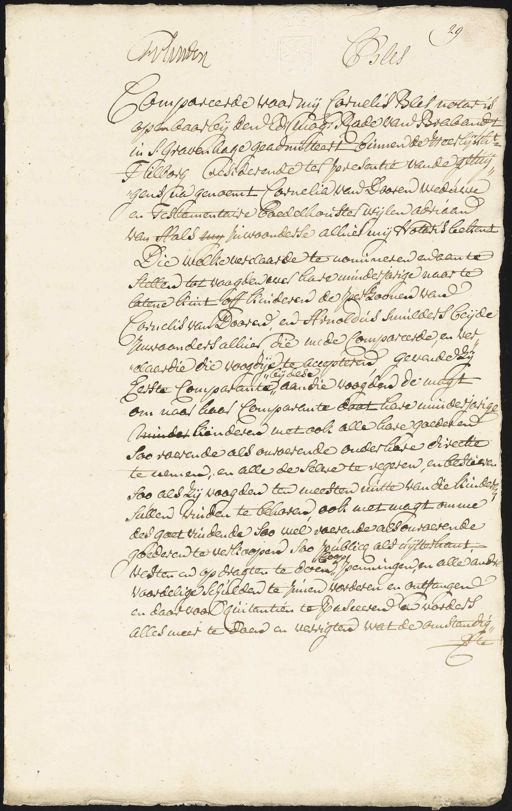 29
C Bles
Compareerde voor mij Cornelis Bles notaris
openbaar bij den Ed: Moog: Rade van Brabandt
in S Gravenhage geadmitteert binnen de Heerlijkht
Tilborg residerende ter presentie van de getuij
gen na genoemt Cornelia van Dooren weduwe
en Testamentaire boedelhoutster wijlen adriaan
van Hals inwoonderse alhier mij Notaris bekent
Die welke verclaarde te nomineren en aan te
stellen tot voogden over hare minderjarige naar te
latene kint off kinderen de persoonen van
Cornelis van Dooren, en Arnoldus Smilders beijde
Inwoonders alhier die mede Compareerde en ver
claarde die voogdije te accepteren gevende Zij
Eerste Comparante aan die voogden de magt
om naar haar Comparante doot hare minderjarige
kinderen met ook alle hare goederen
soo roerende als onroerende onder hare directie
te nemen, en alle de selve te regeren, en bestieren
soo als zij voogden ten meesten nutte van die kinders
sullen vinden te behoren ook met magt omme
des goet vindende soo wel roerende als onroerende
goederen te verkoopen soo publicq als uytterhant
vesten en opdragten te doen, penningen, en alle andre
vaordelige schulden te innen vorderen en ontfangen
en daar voor quitantien te passeeren en vorders
alles meer te doen en verrigten wat de omstandig